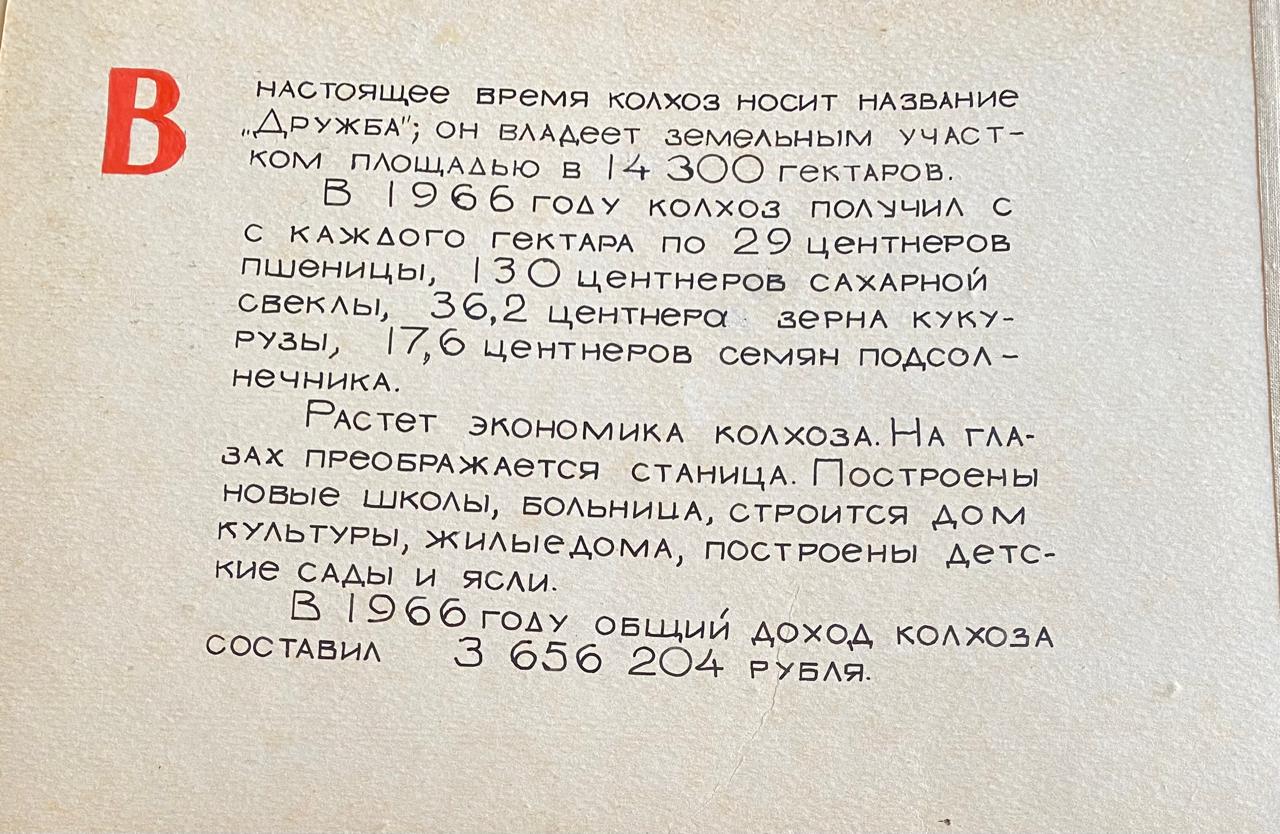 В настоящее время колхоз носит название
„Дружба"; он владеет земельным участ-
ком площадью в 14 300 гектаров.
В 1966 году колхоз получил с
с каждого гектара по 29 центнеров
пшеницы, 130 центнеров сахарной
свеклы, 36,2 центнера зерна куку-
рузы, 17,6 центнеров семян подсол-
нечника.
Растет экономика колхоза. На гла-
зах преображается станица. Построены
новые школы, больница, строится дом
культуры, жилые дома, построены детс-
кие сады и ясли.
В 1966 году общий доход колхоза
составил 3 656 204 рубля.